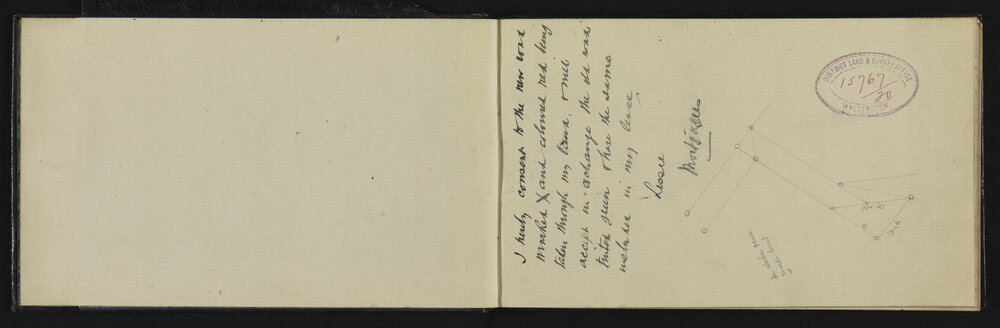 I hereby consent to the new road
marked X and coloured red being
taken through my land. & will
accept in exchange the old road
tinted green & have the same
included in my lease
Lessee
Mortgagees
DISTRICT LAND & SURVEY OFFICE
15767/22
WELLINGTON